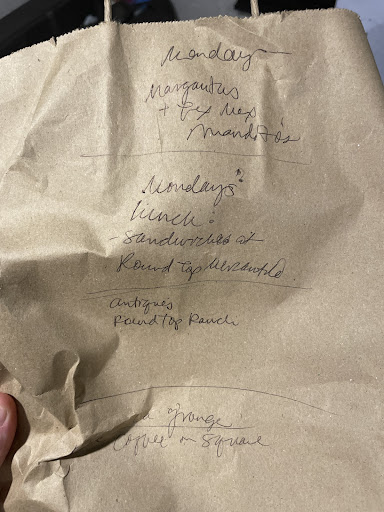 Monday
Margaritas
+ Tex Mex
Mandito's
Mondays:
lunch:
- sandwiches at
Round Top Mercantile
antiques
Round Top Ranch
grange!
coffee on square